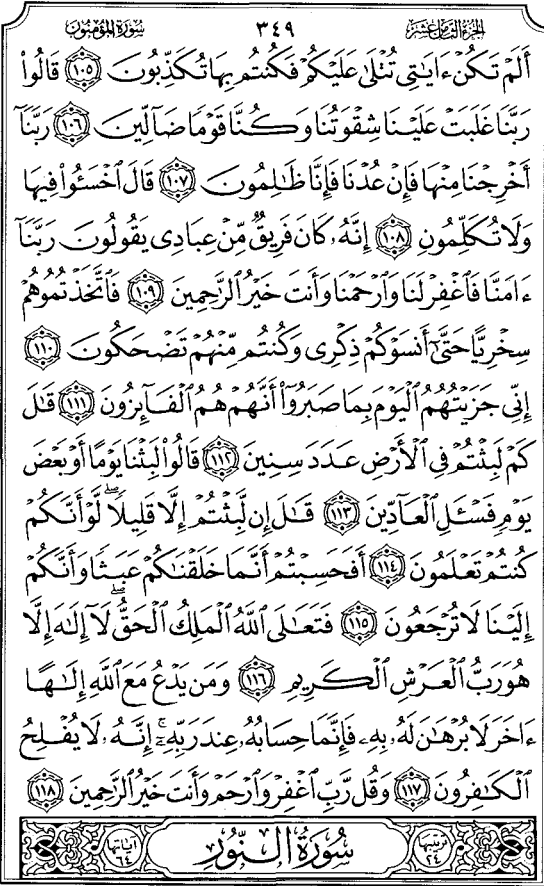 سُورَةُ المُؤْمِنُون ٣٤٩ الجُزْءُ الثَّامِنَ عَشَرَ
أَلَمْ تَكُنْ ءَايَٰتِى تُتْلَىٰ عَلَيْكُمْ فَكُنتُم بِهَا تُكَذِّبُونَ ١٠٥ قَالُوا۟
رَبَّنَا غَلَبَتْ عَلَيْنَا شِقْوَتُنَا وَكُنَّا قَوْمًا ضَآلِّينَ ١٠٦ رَبَّنَآ
أَخْرِجْنَا مِنْهَا فَإِنْ عُدْنَا فَإِنَّا ظَٰلِمُونَ ١٠٧ قَالَ ٱخْسَـُٔوا۟ فِيهَا
وَلَا تُكَلِّمُونِ ١٠٨ إِنَّهُۥ كَانَ فَرِيقٌ مِّنْ عِبَادِى يَقُولُونَ رَبَّنَآ
ءَامَنَّا فَٱغْفِرْ لَنَا وَٱرْحَمْنَا وَأَنتَ خَيْرُ ٱلرَّٰحِمِينَ ١٠٩ فَٱتَّخَذْتُمُوهُمْ
سِخْرِيًّا حَتَّىٰٓ أَنسَوْكُمْ ذِكْرِى وَكُنتُم مِّنْهُمْ تَضْحَكُونَ ١١٠
إِنِّى جَزَيْتُهُمُ ٱلْيَوْمَ بِمَا صَبَرُوٓا۟ أَنَّهُمْ هُمُ ٱلْفَآئِزُونَ ١١١ قَٰلَ
كَمْ لَبِثْتُمْ فِى ٱلْأَرْضِ عَدَدَ سِنِينَ ١١٢ قَالُوا۟ لَبِثْنَا يَوْمًا أَوْ بَعْضَ
يَوْمٍ فَسْـَٔلِ ٱلْعَآدِّينَ ١١٣ قَٰلَ إِن لَّبِثْتُمْ إِلَّا قَلِيلًا ۖ لَّوْ أَنَّكُمْ
كُنتُمْ تَعْلَمُونَ ١١٤ أَفَحَسِبْتُمْ أَنَّمَا خَلَقْنَٰكُمْ عَبَثًا وَأَنَّكُمْ
إِلَيْنَا لَا تُرْجَعُونَ ١١٥ فَتَعَٰلَى ٱللَّهُ ٱلْمَلِكُ ٱلْحَقُّ ۖ لَآ إِلَٰهَ إِلَّا
هُوَ رَبُّ ٱلْعَرْشِ ٱلْكَرِيمِ ١١٦ وَمَن يَدْعُ مَعَ ٱللَّهِ إِلَٰهًا
ءَاخَرَ لَا بُرْهَٰنَ لَهُۥ بِهِۦ فَإِنَّمَا حِسَابُهُۥ عِندَ رَبِّهِۦٓ ۚ إِنَّهُۥ لَا يُفْلِحُ
ٱلْكَٰفِرُونَ ١١٧ وَقُل رَّبِّ ٱغْفِرْ وَٱرْحَمْ وَأَنتَ خَيْرُ ٱلرَّٰحِمِينَ ١١٨
ترتيبها ٢٤ سُورَةُ النُّورِ آياتها ٦٤